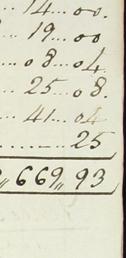 ... 14 ... 00.
... 19 ... 00
... 08 ... 04
... 25 ... 08.
... 41 ... 04
......... 25
,, 669,, 93